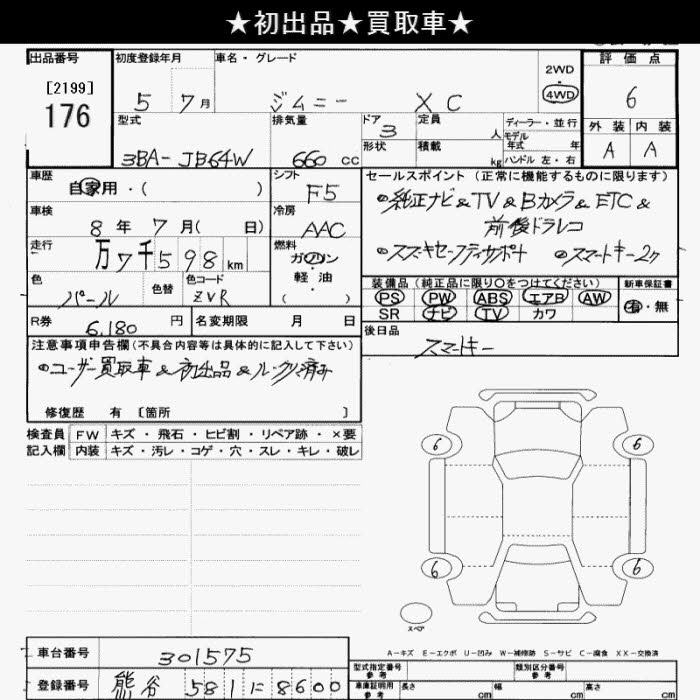 ★初出品★買取車★
出品番号 初度登録年月 車名・グレード 評価点
[2199]
176
5 7月 ジムニー XC
2WD
4WD
6
型式 排気量 ドア 定員 ディーラー・並行
3BA-JB64W 660cc 3 人 モデル年式 年式
形状 積載 kg ハンドル 左・右
外装 内装
A A
車歴 シフト
自家用・( ) F5
車検 冷房
8年 7月( 日) AAC
走行 燃料
万7千598km ガソリン・軽油
( )
色 色替 色コード
パール ZVR
R券 6,180円 名変期限 月 日
セールスポイント (正常に機能するものに限ります)
純正ナビ&TV&Bカメラ&ETC&
前後ドラレコ
スズキセーフティサポート スマートキー2ケ
装備品 (純正品に限り○をつけてください) 新車保証書
PS PW ABS エアB AW 有・無
SR ナビ TV カワ
後日品
スマートキー
注意事項申告欄(不具合内容等は具体的に記入して下さい)
ユーザー買取車&初出品&ルークリ済み
修復歴 有 [箇所 ]
検査員 FW キズ・飛石・ヒビ割・リペア跡・×要
記入欄 内装 キズ・汚レ・コゲ・穴・スレ・キレ・破レ
6 6
6 6
スペア
A-キズ E-エクボ U-凹み W-補修跡 S-サビ C-腐食 XX-交換済
車台番号 301575
登録番号 熊谷 581 に 8600
型式指定番号 参考 類別区分番号 参考
車庫証明用 参考 長さ cm 幅 cm 高さ cm